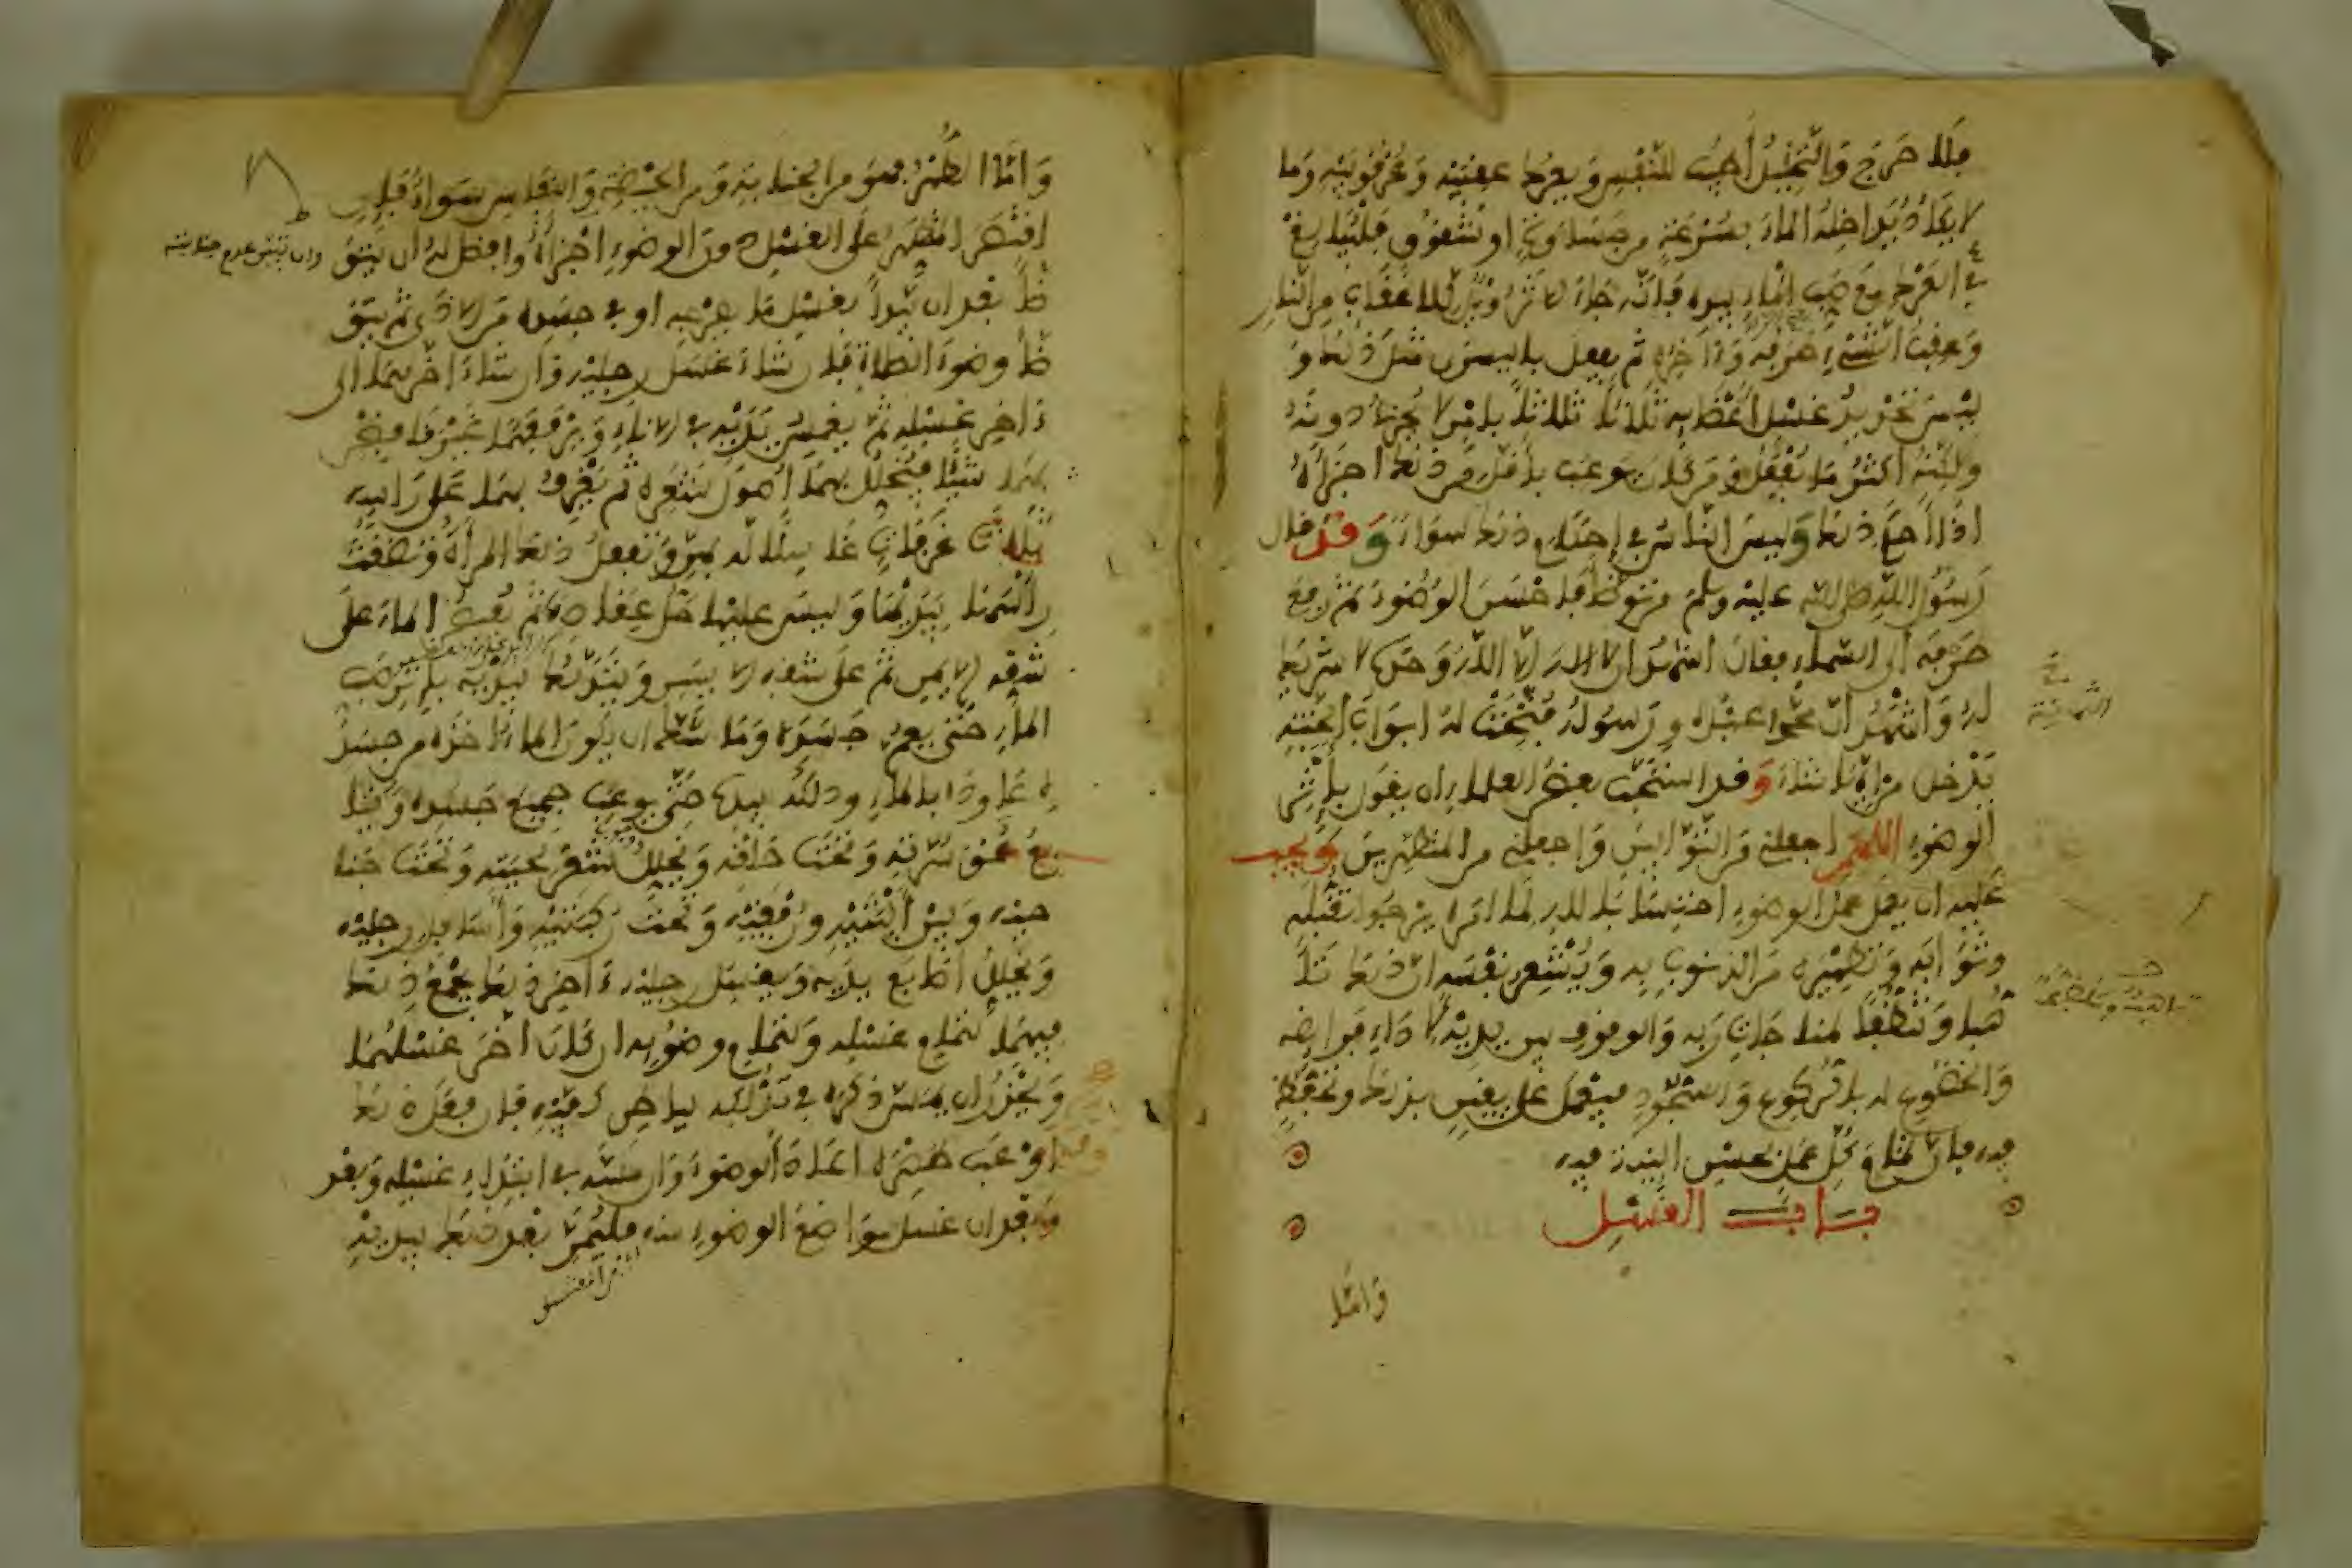 فلا حرج والتخليل أطيب للنفس ويعرك عقبيه وعرقوبيه وما
لا يكاد يداخله الماء بسرعة من جساوة أو شقوق فليبالغ
في العرك مع صب الماء بيده فإنه جاء الأثر ويل للأعقاب من النار
وعقب الشيء طرفه وآخره ثم يفعل باليسرى مثل ذلك و
ليس تحديد غسل أعضائه ثلاثا ثلاثا بأمر لا يجزئ دونه
ولكنه أكثر ما يفعل ومن كان يوعب بأقل من ذلك أجزأه
إذا أحكم ذلك وليس الناس في إحكام ذلك سواء وقد قال
رسول الله صلى الله عليه وسلم من توضأ فأحسن الوضوء ثم رفع
طرفه إلى السماء فقال أشهد أن لا إله إلا الله وحده لا شريك
له وأشهد أن محمدا عبده ورسوله فتحت له أبواب الجنة
الثمانية
يدخل من أيها شاء وقد استحب بعض العلماء أن يقول بإثر
الوضوء اللهم اجعلني من التوابين واجعلني من المتطهرين ويجب
عليه أن يعمل عمل الوضوء احتسابا لله لما أمره به يرجو تقبله
وثوابه وتطهيره من الذنوب به ويشعر نفسه أن ذلك تأ
هب وتنظف لمناجات ربه والوقوف بين يديه لأداء فرائضه
والخضوع له بالركوع والسجود فيعمل على يقين بذلك وتحفظ
فيه فإن تمام كل عمل بحسن النية فيه
باب الغسل
وأما
وأما الطهر فهو من الجنابة ومن الحيضة والنفاس سواء فإن
اقتصر المتطهر على الغسل دون الوضوء أجزأه وأفضل له أن يتوض
ضأ بعد أن يبدأ بغسل ما بفرجه أو في جسده من الأذى ثم يتو
ضأ وضوء الصلاة فإن شاء غسل رجليه وإن شاء أخرهما إلى
آخر غسله ثم يغمس يديه في الإناء ويرفعهما غير قابض
بهما شيئا فيخلل بهما أصول شعره ثم يغرف بهما على رأسه
ثلاث غرفات غاسلا له بهن وتفعل ذلك المرأة وتضغث
رأسها بيديها وليس عليها حل عقاصها ثم يفيض الماء على
شقه الأيمن ثم على شقه الأيسر ويتدلك بيديه بإثر صب
الماء حتى يعم جسده وما شك أن يكون الماء أخذه من جسد
ه عاوده بالماء ودلكه بيده حتى يوعب جميع جسده ويتا
بع عمق سرته وتحت حلقه ويخلل شعر لحيته وتحت جنا
حيه وبين أليتيه ورفغيه وتحت ركبتيه وأسافل رجليه
ويخلل أصابع يديه ويغسل رجليه آخر ذلك يجمع ذلك
فيهما لتمام غسله ولتمام وضوئه إن كان أخر غسلهما
ويحذر أن يمس ذكره في تدلكه بباطن كفه فإن فعل ذلك
وقد أوعب طهره أعاد الوضوء وإن مسه في ابتداء غسله وبعد
وبعد أن غسل مواضع الوضوء منه فليمر بعد ذلك بيديه